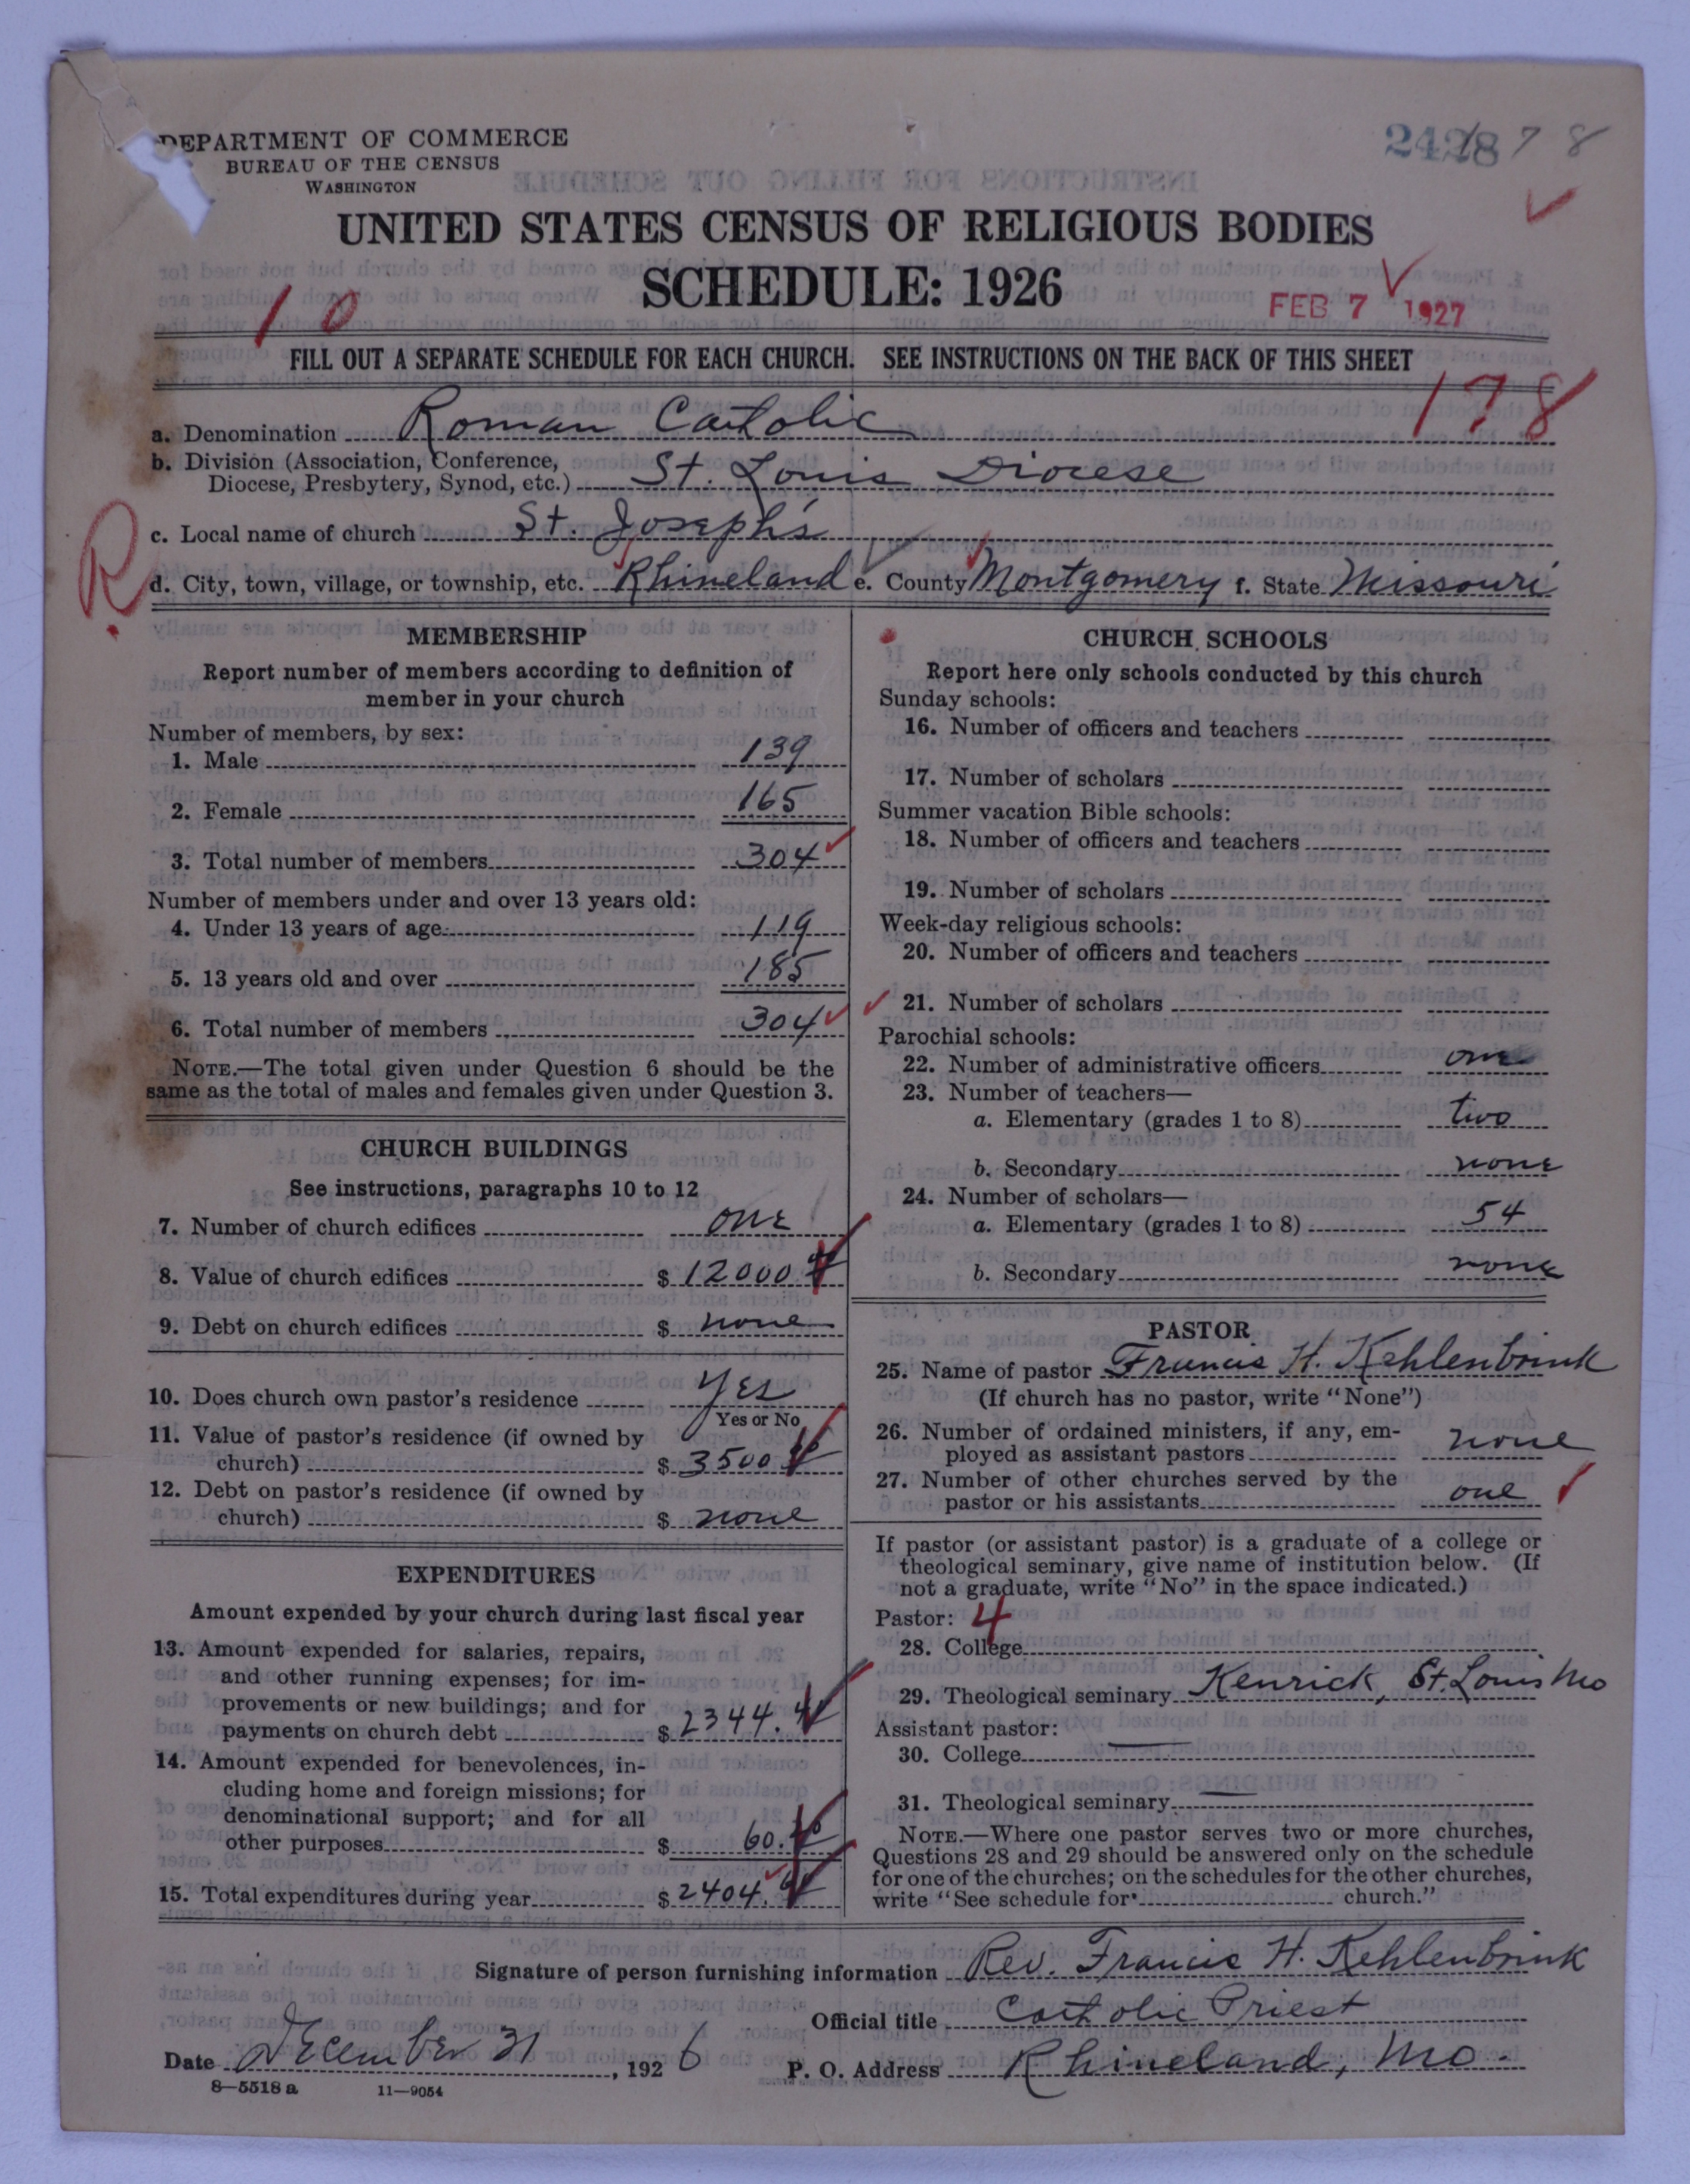 DEPARTMENT OF COMMERCE
BUREAU OF THE CENSUS
WASHINGTON
UNITED STATES CENSUS OF RELIGIOUS BODIES
SCHEDULE: 1926
FEB 7 1927
1 0
FILL OUT A SEPARATE SCHEDULE FOR EACH CHURCH. SEE INSTRUCTIONS ON THE BACK OF THIS SHEET
178
a. Denomination Roman Catholic
b. Division (Association, Conference,
Diocese, Presbytery, Synod, etc.) St. Louis Diocese
c. Local name of church St. Joseph's
R
d. City, town, village, or township, etc. Rhineland e. County Montgomery f. State Missouri
MEMBERSHIP
Report number of members according to definition of
member in your church
Number of members, by sex:
1. Male 139
2. Female 165
3. Total number of members 304
Number of members under and over 13 years old:
4. Under 13 years of age 119
5. 13 years old and over 185
6. Total number of members 304
NOTE.—The total given under Question 6 should be the
same as the total of males and females given under Question 3.
CHURCH BUILDINGS
See instructions, paragraphs 10 to 12
7. Number of church edifices one
8. Value of church edifices $ 12000
9. Debt on church edifices $ none
10. Does church own pastor's residence Yes
Yes or No
11. Value of pastor's residence (if owned by
church) $ 3500
12. Debt on pastor's residence (if owned by
church) $ none
EXPENDITURES
Amount expended by your church during last fiscal year
13. Amount expended for salaries, repairs,
and other running expenses; for im-
provements or new buildings; and for
payments on church debt $ 2344.
14. Amount expended for benevolences, in-
cluding home and foreign missions; for
denominational support; and for all
other purposes $ 60.
15. Total expenditures during year $ 2404.
CHURCH SCHOOLS
Report here only schools conducted by this church
Sunday schools:
16. Number of officers and teachers
17. Number of scholars
Summer vacation Bible schools:
18. Number of officers and teachers
19. Number of scholars
Week-day religious schools:
20. Number of officers and teachers
21. Number of scholars
Parochial schools:
22. Number of administrative officers one
23. Number of teachers—
a. Elementary (grades 1 to 8) two
b. Secondary none
24. Number of scholars—
a. Elementary (grades 1 to 8) 54
b. Secondary none
PASTOR
25. Name of pastor Francis H. Kehlenbrink
(If church has no pastor, write "None")
26. Number of ordained ministers, if any, em-
ployed as assistant pastors none
27. Number of other churches served by the
pastor or his assistants one
If pastor (or assistant pastor) is a graduate of a college or
theological seminary, give name of institution below. (If
not a graduate, write "No" in the space indicated.)
Pastor: 4
28. College
29. Theological seminary Kenrick, St. Louis Mo
Assistant pastor:
30. College
31. Theological seminary
NOTE.—Where one pastor serves two or more churches,
Questions 28 and 29 should be answered only on the schedule
for one of the churches; on the schedules for the other churches,
write "See schedule for church."
Signature of person furnishing information Rev. Francis H. Kehlenbrink
Official title Catholic Priest
Date December 31, 1926 P. O. Address Rhineland, Mo.
8—5518 a 11—9054